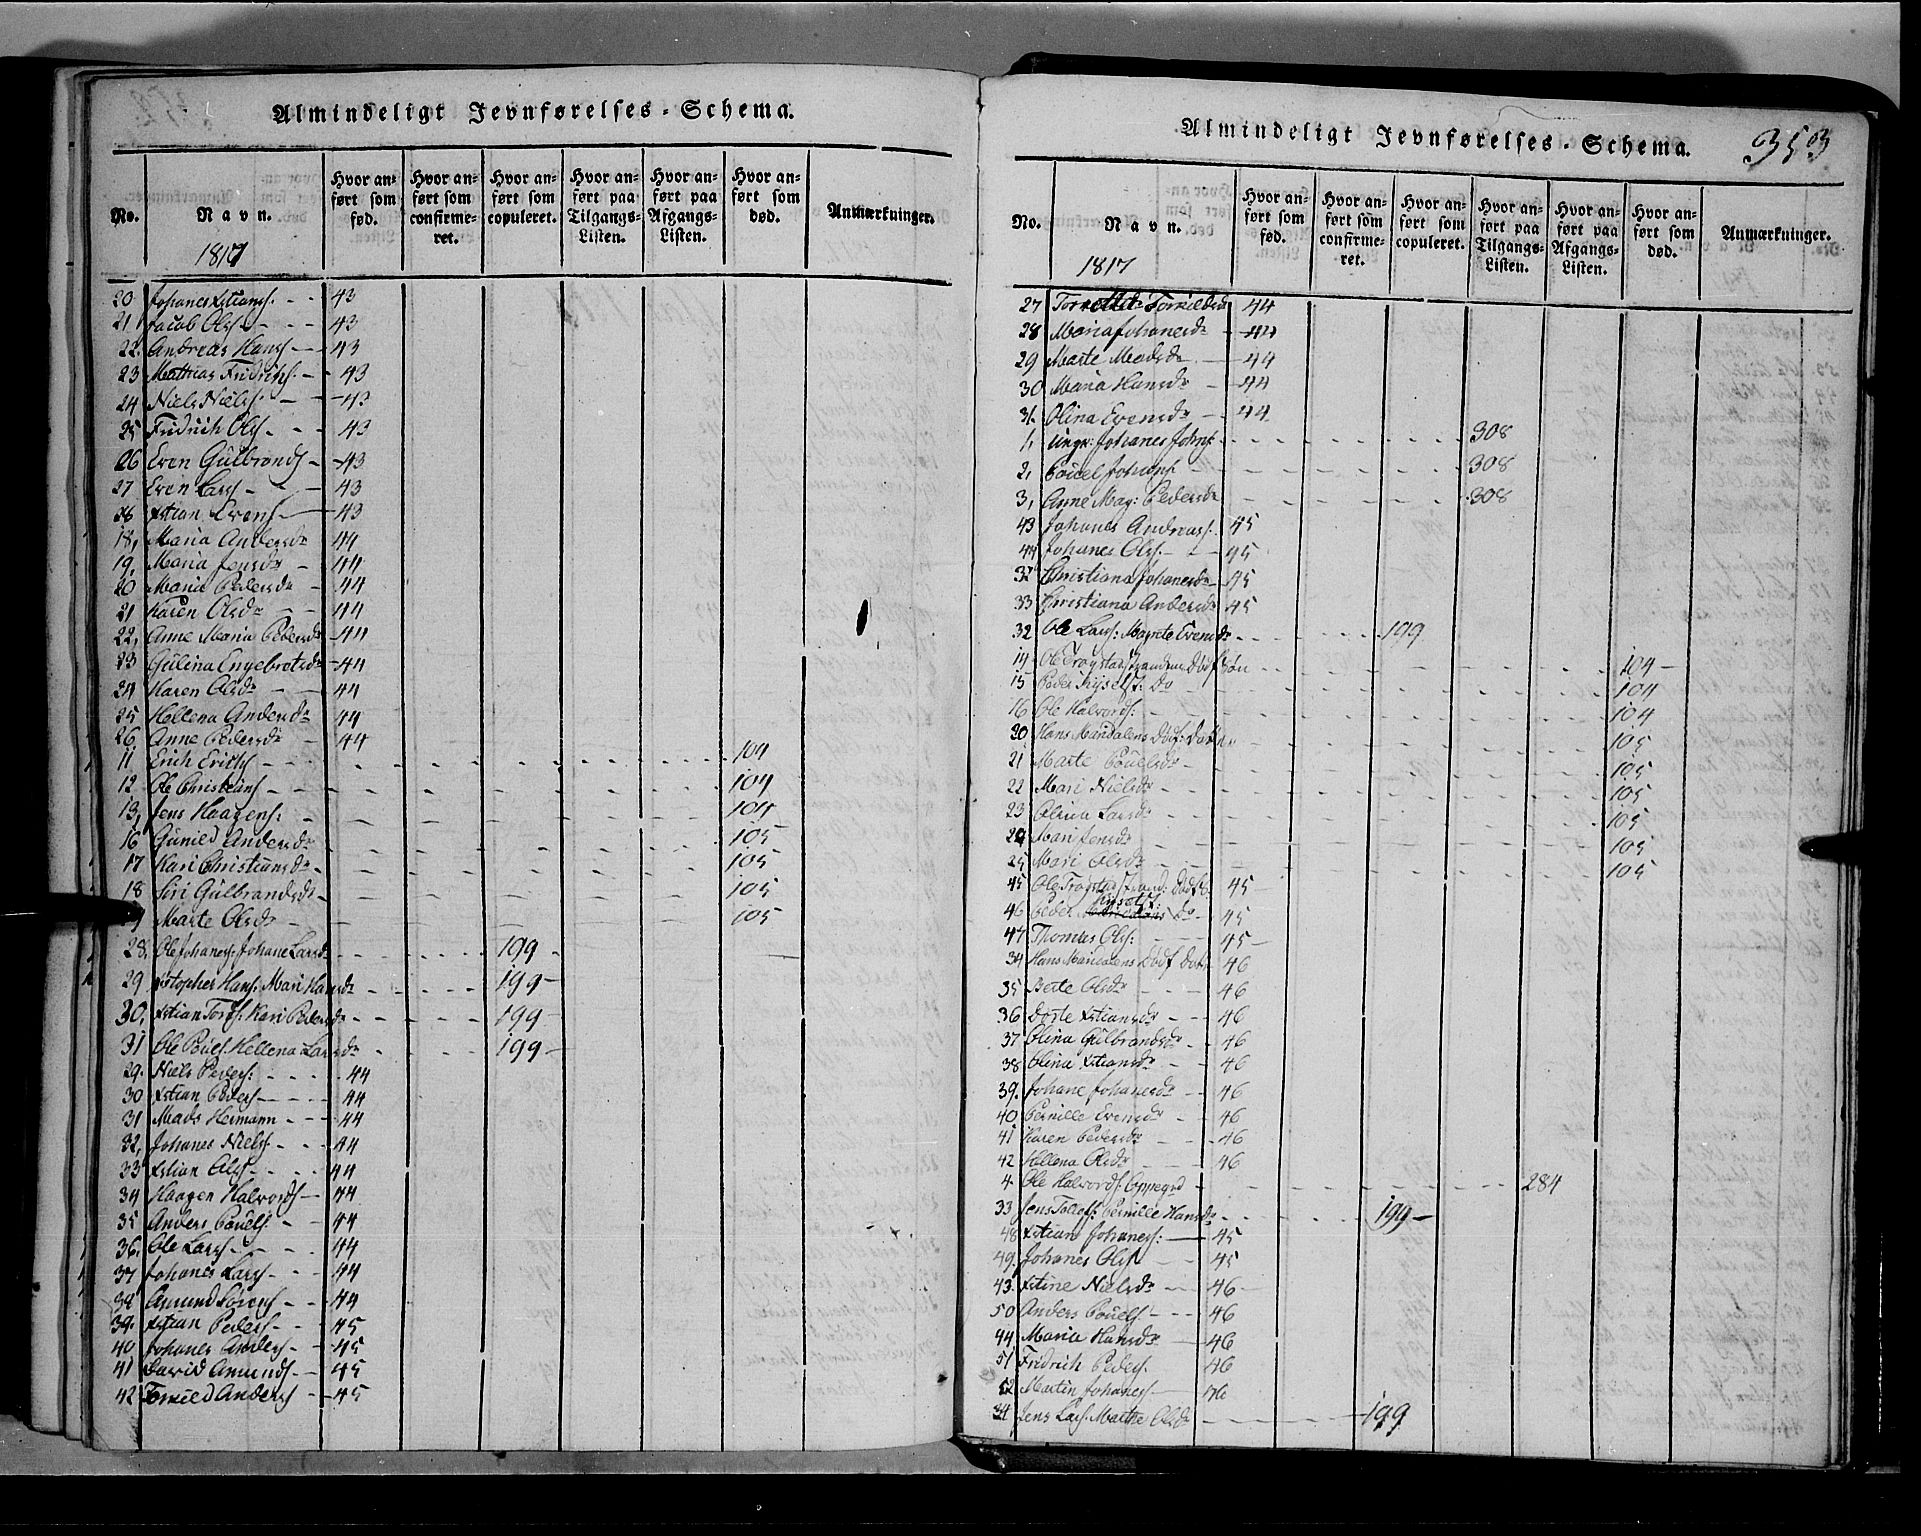 Almindeligt Jevnførelses-Schema.
No. Navn. 1817 Hvor anført som fød. Hvor anført som confirmeret. Hvor anført som copuleret. Hvor anført paa Tilgangs-Listen. Hvor anført paa Afgangs-Listen. Hvor anført som død. Anmærkninger.
20 Johanes Xtians. 43
21 Jacob Ols. 43
22. Andreas Hans. 43
23 Mathias Fridrichs. 43
24 Niels Niels. 43
25 Fridrich Ols. 43
26 Even Gulbrands. 43
27 Even Lars. 43
28 Xtian Evens. 43
18, Maria Andersdr 44
19, Maria Jensdr 44
20 Maria Pedersdr 44
21 Karen Olsdr 44
22, Anne Maria Pedersdr 44
23 Gulina Engebretsdr 44
24 Karen Olsdr 44
25 Hellena Andersdr 44
26 Anne Pedersdr 44
11 Erich Erichs. 104
12 Ole Christians. 104
13, Jens Haagens: 104
16 Gunild Andersdr 105
17 Kari Christiansdr 105
18 Siri Gulbrandsdr 105
19 Marte Olsdr 105
28. Ole Johanes: Johane Larsdr 199
29 Xstopher Hans: Mari Hansdr 199
30, Xstian Tors: Kari Pedersdr 199
31 Ole Pouels. Hellena Larsdr 199
29. Niels Peders: 44
30 Xstian Peders. 44
31 Mads Hermann 44
32, Johanes Niels. 44
33 Xstian Ols. 44
34 Haagen Halvords 44
35 Anders Pouels. 44
36. Ole Lars. 44
37 Johanes Lars. 44
38 Amund Sørens. 44
39. Xstian Peders. 45
40 Johanes Anders. 45
41 David Amunds. 45
42 Torkild Anders. 45
Almindeligt Jevnførelses-Schema. 353
No. Navn. 1817 Hvor anført som fød. Hvor anført som confirmeret. Hvor anført som copuleret. Hvor anført paa Tilgangs-Listen. Hvor anført paa Afgangs-Listen. Hvor anført som død. Anmærkninger.
27 Torkildsdr 44
28 Maria Johanesdr 44
29 Marte Madsdr 44
30 Maria Hansdr 44
31. Olina Evensdr 44
1, Ungk: Johanes Johns. 308
2, Pouel Johans. 308
3, Anne Mag: Pedersdr 308
43 Johanes Andreas. 45
44 Johanes Ols. 45
32 Christiana Johanesdr 45
33 Christiana Andersdr 45
32 Ole Lars: Magrete Evensdr 199
14 Ole Trøgstadstranden Dødf Søn 104
15 Peder Kiselst: Do 104
16 Ole Halvords: 104
20 Hans Mandalens Dødf: Datter 105
21 Marte Pouelsdr 105
22 Mari Nielsdr 105
23 Olina Larsdr 105
24 Mari Jensdr 105
25 Mari Olsdr 105
45 Ole Trøgstadstrand: Dødf S. 45
46 Peder Kiselst: Do 45
47 Thomas Ols: 45
34 Hans Mandalens Dødf Dat 46
35 Berte Olsdr 46
36 Dorte Xstiansdr 46
37 Olina Gulbrandsdr 46
38 Olina Xstiansdr 46
39. Johane Johanesdr 46
40 Pernille Evensdr 46
41 Karen Pedersdr 46
42 Hellena Olsdr 46
4 Ole Halvords. Oppegrd 284
33 Jens Tollefs: Pernille Hansdr 199
48 Xstian Johanes: 45
49. Johanes Ols. 45
43. Xstine Nielsdr 46
50 Anders Pouels. 46
44 Maria Hansdr 46
51 Fridrich Peders. 46
52 Martin Johanes. 46
34 Jens Lars. Marthe Olsdr 199